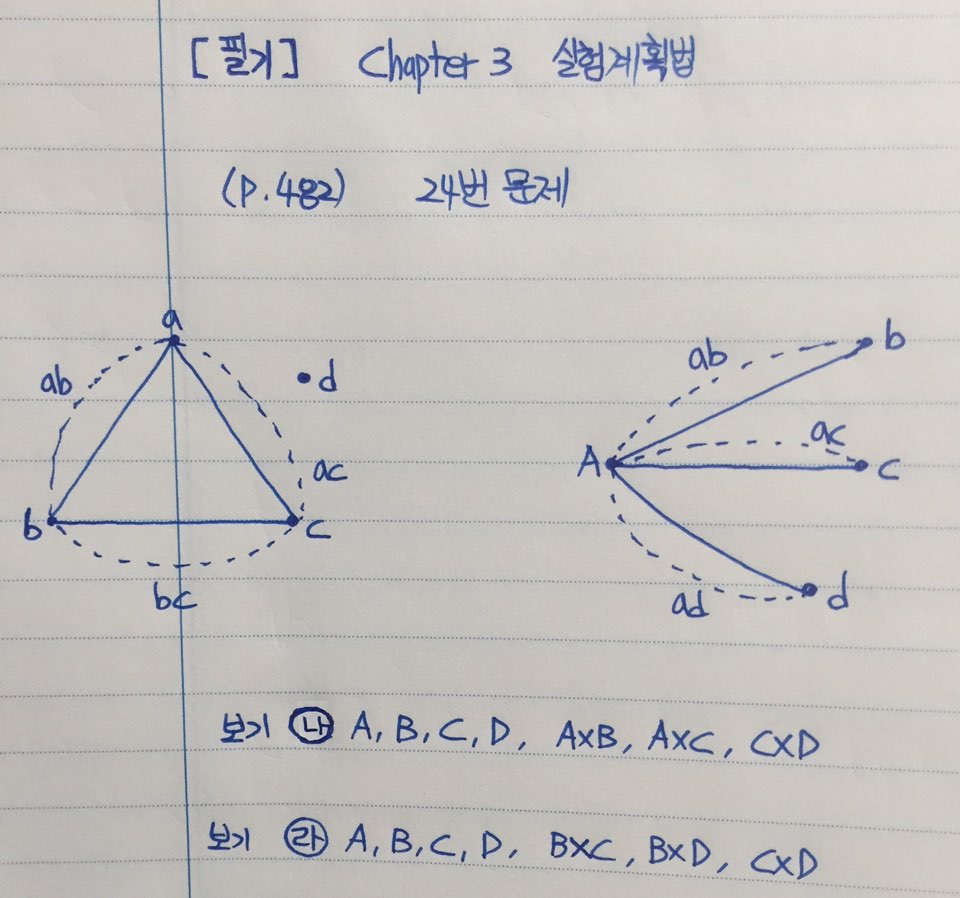 [필기] Chapter 3 실험계획법
(P.482) 24번 문제
a
ab
d
ac
b
c
bc
ab
b
A
ac
c
ad
d
보기 ㉯ A, B, C, D, A×B, A×C, C×D
보기 ㉱ A, B, C, D, B×C, B×D, C×D